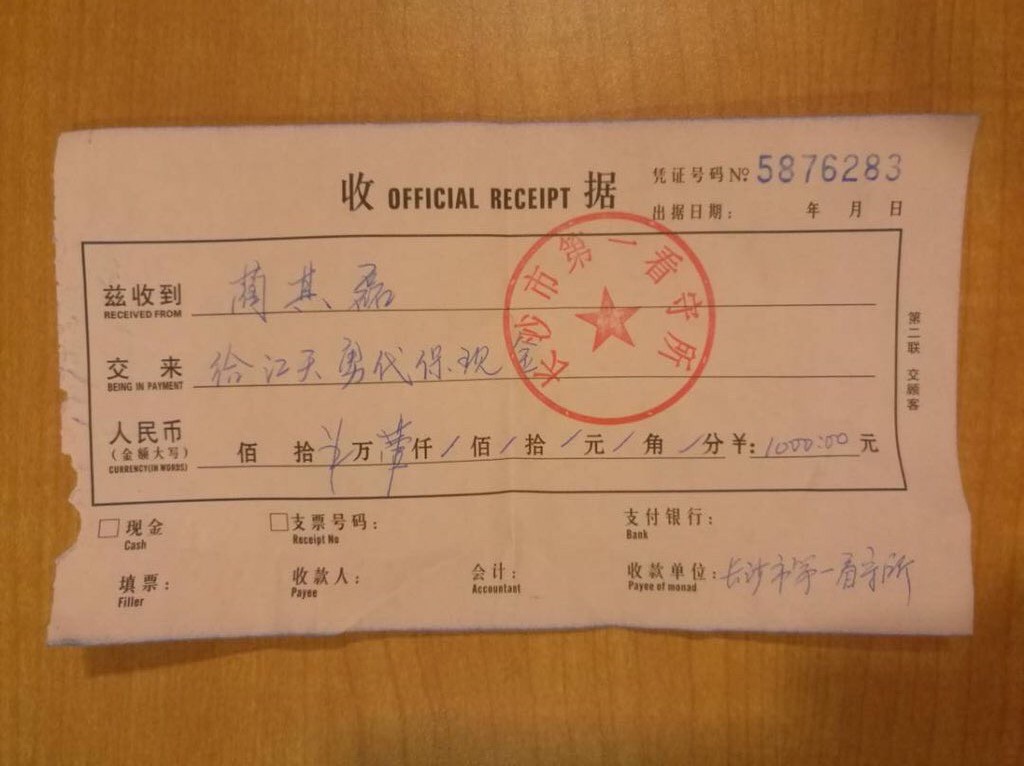 收 OFFICIAL RECEIPT 据
凭证号码 № 5876283
出据日期： 年 月 日
兹收到 蔺其磊
RECEIVED FROM
交来 给江天勇代保现金
BEING IN PAYMENT
人民币
（金额大写）
CURRENCY(IN WORDS)
佰 拾 万 壹仟 / 佰 / 拾 / 元 / 角 / 分 ¥: 1000:00 元
长沙市第一看守所
第二联 交顾客
现金
Cash
支票号码：
Receipt No
支付银行：
Bank
填票：
Filler
收款人：
Payee
会计：
Accountant
收款单位：长沙市第一看守所
Payee of monad